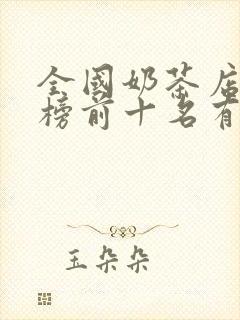 全國奶茶店
榜前十名有
玉朵朵